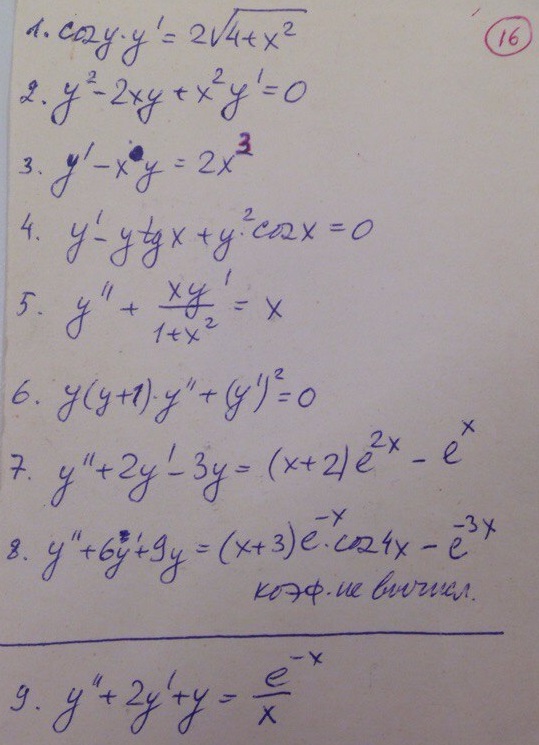 1. cos y · y' = 2√(4+x²)
16
2. y² - 2xy + x²y' = 0
3. y' - x·y = 2x³
4. y' - y tg x + y² · cos x = 0
5. y'' + xy'/(1+x²) = x
6. y(y+1)·y'' + (y')² = 0
7. y'' + 2y' - 3y = (x+2)e^{2x} - e^x
8. y'' + 6y' + 9y = (x+3)e^{-x}·cos 4x - e^{-3x}
коэф. не вычисл.
9. y'' + 2y' + y = e^{-x}/x